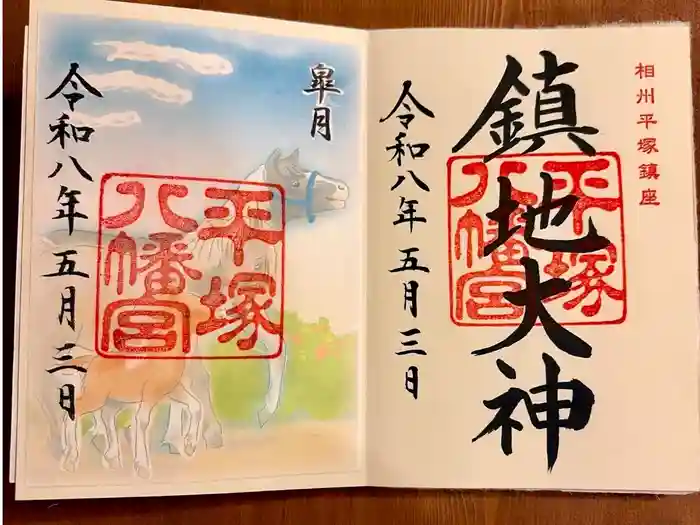 相州平塚鎮座
鎮地大神
平塚八幡宮
令和八年五月三日
皐月
平塚八幡宮
令和八年五月三日